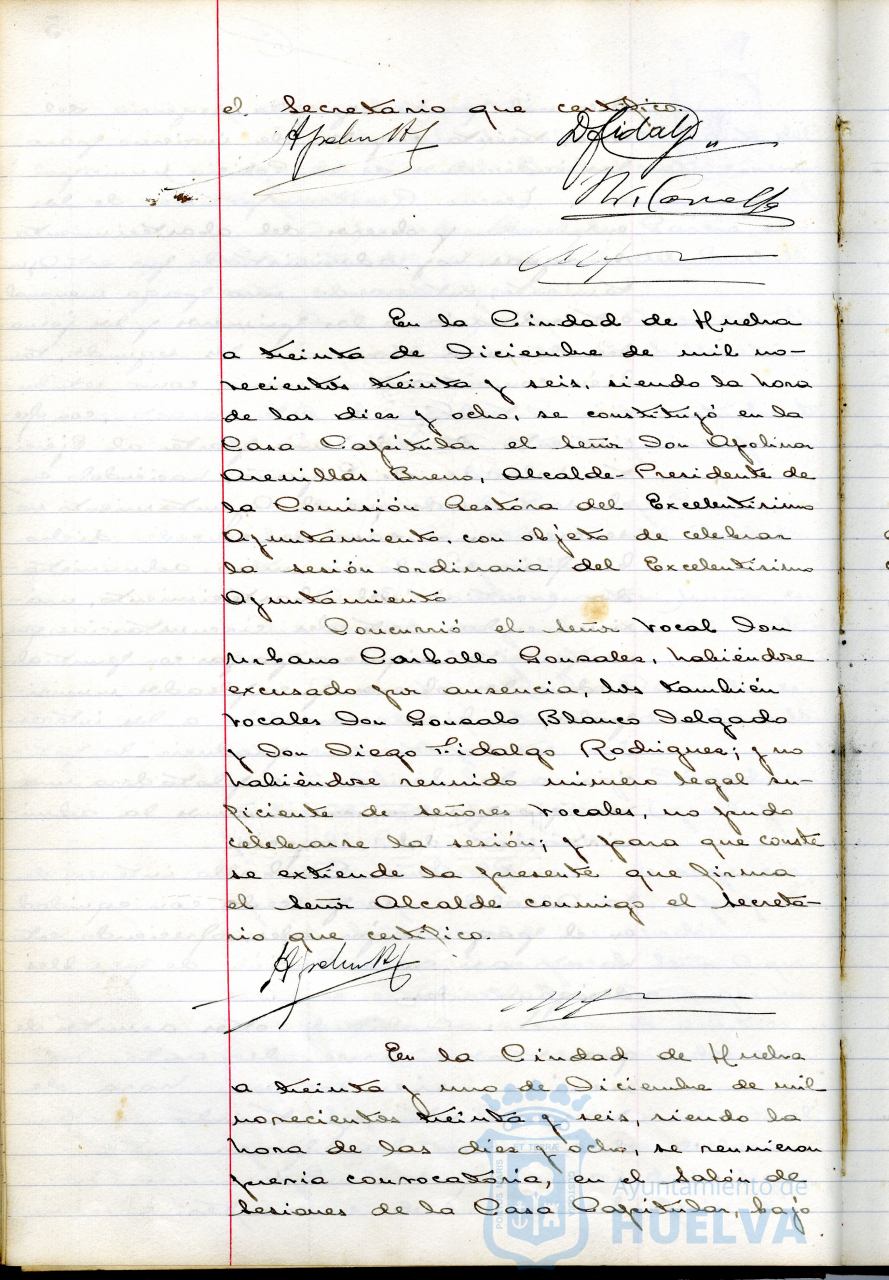 el Secretario que certifico.
D. Fidalgo
U. Carballo
En la Ciudad de Huelva
a treinta de Diciembre de mil no-
vecientos treinta y seis, siendo la hora
de las dies y ocho, se constituyó en la
Casa Capitular el Señor Don Apolinar
Arenillas Bueno, Alcalde-Presidente de
la Comisión Gestora del Excelentísimo
Ayuntamiento, con objeto de celebrar
la sesión ordinaria del Excelentísimo
Ayuntamiento
Concurrió el señor Vocal Don
Urbano Carballo Gonsales, habiéndose
excusado por ausencia, los también
Vocales Don Gonsalo Blanco Delgado
y Don Diego Fidalgo Rodrigues; y no
habiéndose reunido número legal su-
ficiente de señores Vocales, no pudo
celebrarse la sesión; y para que conste
se extiende la presente que firma
el Señor Alcalde conmigo el Secreta-
rio que certifico.
En la Ciudad de Huelva
a treinta y uno de Diciembre de mil
novecientos treinta y seis, siendo la
hora de las dies y ocho, se reunieron
previa convocatoria, en el Salón de
Sesiones de la Casa Capitular, bajo
Ayuntamiento de
HUELVA